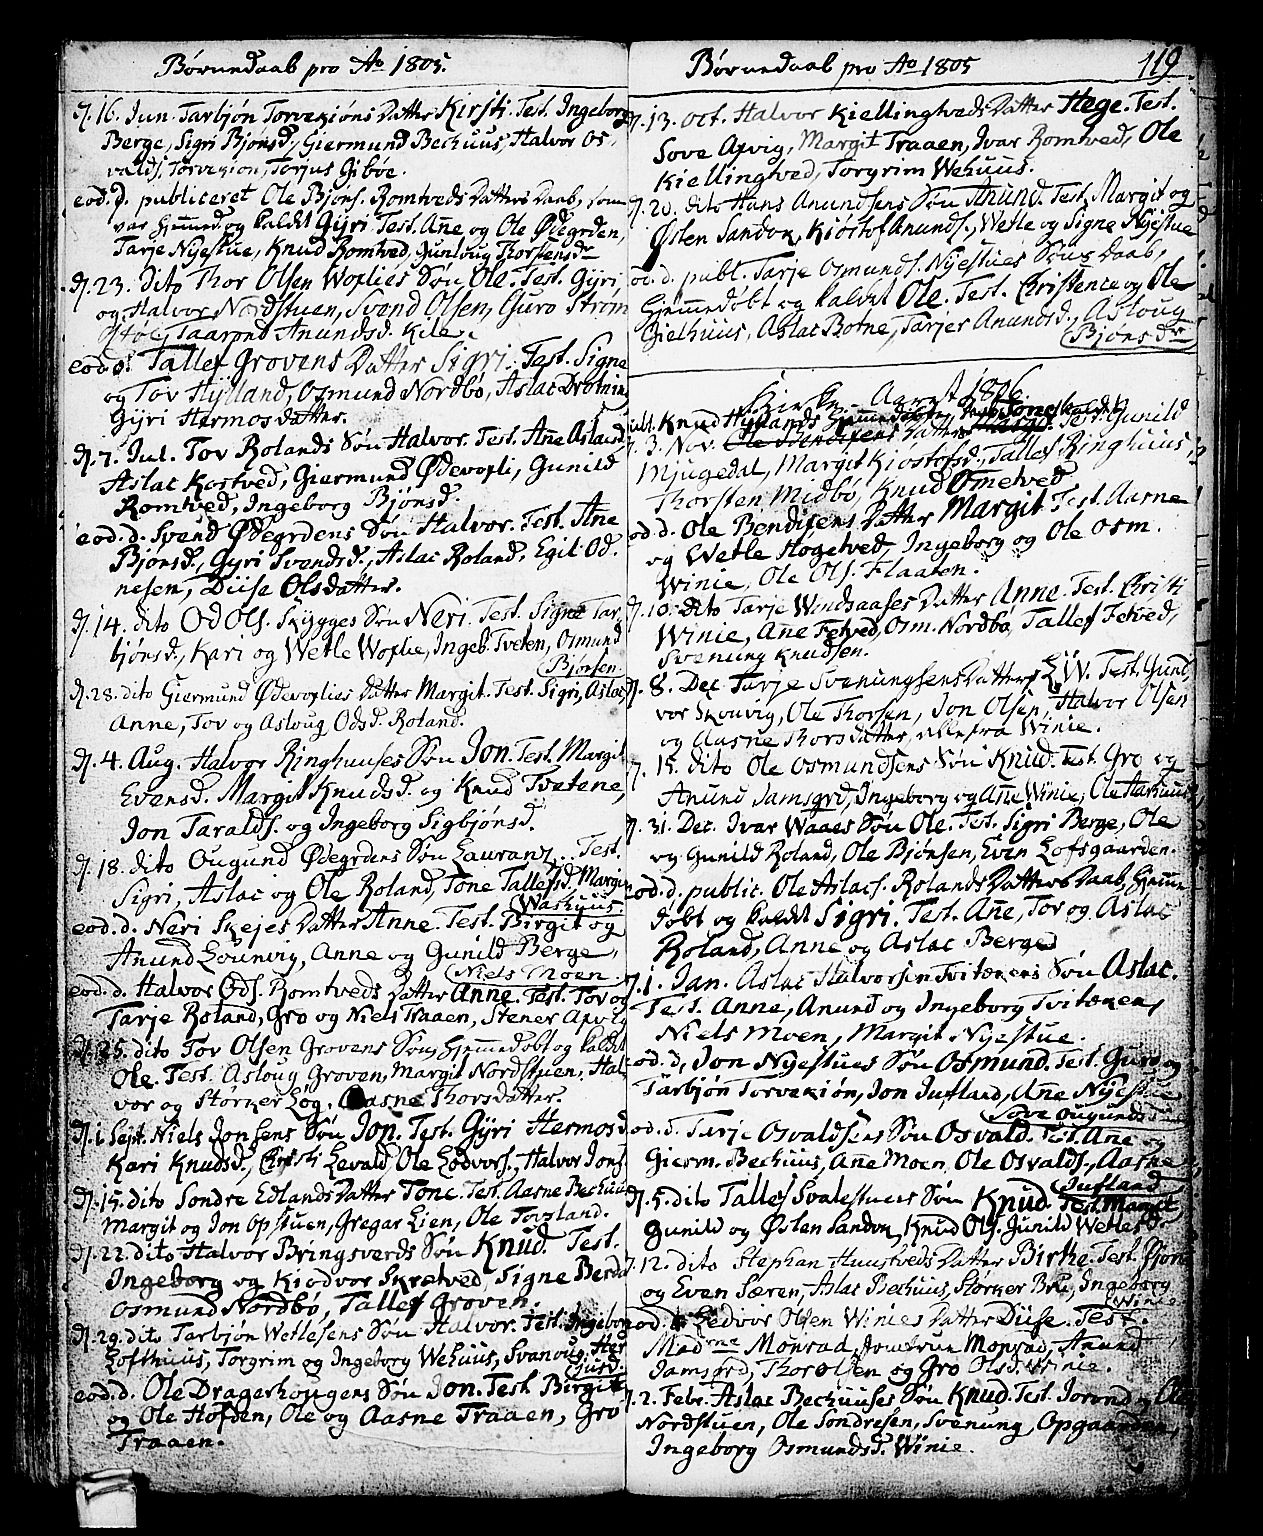 Børnedaab pro Ao 1805.
d. 16. Jun. Tarbjøn Torvekiøns Datter Kirsti. Test. Ingeborg
Berge, Sigri Bjønsd., Giermund Bechuus, Halvor Os-
valds, Torvekion, Torjus Gibøe.
eod. d. publiceret Ole Bjøns. Romtveds Datters Daab, som
var Hjemmed. og kaldt Gyri. Test. Añe og Ole Ødegrden,
Tarje Nyestue, Knud Romtved, Gunloug Thorsensdr
d. 23. dito Thor Olsen Woplies Søn Ole. Test. Gyri,
og Halvor Nordstuen, Svend Olsen, Guro Strøm
støl, Taarend Anundsd. Kile.
eod. d. Tallef Grovens Datter Sigri. Test. Signe
og Tov Hylland, Osmund Nordbø, Aslac Drotnin
Gyri Hermosdatter.
d. 7. Jul. Tov Rolands Søn Halvor. Test. Añe Aslacsd
Aslac Kostved, Giermund Ødevopli, Gunild
Romtved, Ingeborg Bjønsd.
eod. d. Svend Ødegrdens Søn Halvor. Test. Ane
Bjønsd., Gyri Svendsd., Aslac Roland, Egil Od-
nesen, Diise Olsdatter.
d. 14. dito Od Ols. Skygges Søn Neri. Test. Signe Tar-
bjønsd., Kari og Wetle Woplie, Ingeb. Tveten, Osmund
Bjønsen.
d. 28. dito Giermund Ødevoplies Datter Margit. Test. Sigri, Aslac,
Anne, Tov og Asloug Odsd. Roland.
d. 4. Aug. Halvor Ringhuuses Søn Jon. Test. Margit
Evensd. Margit Knudsd. og Knud Tvetene,
Jon Taralds. og Ingeborg Sigbjønsd.
d. 18. dito Ougund Ødegrdens Søn Lauranz. Test.
Sigri, Aslac og Ole Roland, Tone Tallefsd. Margit
Washuus.
eod. d. Neri Skejes Datter Anne. Test. Birgit og
Anund Lounvig, Anne og Gunild Berge,
Niels Moen
eod. d. Halvor Ods. Romtveds Datter Anne. Test. Tov og
Tarje Roland, Gro og Niels Traaen, Stener Apvig
d. 25. dito Tov Olsen Grovens Søn, Hjemmedøbt og kaldet
Ole. Test. Asloug Groven, Margit Nordstuen, Hal-
vor og Størker Løg, Aasne Thorsdatter.
d. 1 Sept. Niels Jonsens Søn Jon. Test. Gyri Hermosd.
Kari Knudsd., Christi Levald, Ole Lodvors., Halvor Jons.
d. 15. dito Sondre Edlands Datter Tone. Test. Aasne Bechuus
Margit og Jon Opstuen, Gregar Lien, Ole Tovsland.
d. 22. dito Halvor Bringsverds Søn Knud. Test.
Ingeborg og Kiodvor Skrætved, Signe Berdal
Osmund Nordbø, Tallef Groven.
d. 29. dito Tarbjøn Wetlesens Søn Halvor. Test. Ingeborg
Lofthuus, Torgrim og Ingeborg Wehuus, Svanoug Her
Giusd.
eod. d. Ole Dragerhougens Søn Jon. Test. Birgit
og Ole Hofden, Ole og Aasne Traaen, Gro
Traaen.
Børnedaab pro Ao 1805
119
d. 13. Oct. Halvor Kiellingtveds Datter Hege. Test.
Sove Apvig, Margit Traaen, Ivar Romtved, Ole
Kiellingtved, Torgrim Wehuus.
d. 20. dito Hans Anundsens Søn Anund. Test. Margit og
Østen Sandok, Kiøstof Anunds., Wetle og Signe Nyestue
eod. d. publ. Tarje Osmunds. Nyestues Søns Daab,
Hjemmedøbt og kaldet Ole. Test. Christence og Ole
Gielhuus, Aslac Botne, Tarjer Anundsd., Asloug
Bjønsdr
1806
publ. Knud Hyllands
d. 3. Nov. Ole Bendixens Datter Test. Gunild
Mjugedal, Margit Kiostofsd., Tallef Ringhuus,
Thorsten Midbø, Knud Omtved
eod. d. Ole Bendixens Datter Margit. Test. Aarne
og Wetle Høgetved, Ingeborg og Ole Osm.
Winie, Ole Ols. Flaaten.
d. 10. Dito Tarje Windsaases Datter Anne. Test. Christi
Winie, Añe Fetved, Osm. Nordbø, Tallef Fetved,
Svenung Knudsen.
d. 8. Dec. Tarje Svenungsens Datter Liv. Test. Gund-
vor Skouvig, Ole Thorsen, Jon Olsen, Halvor Olsen
og Aasne Thorsdatter, alle fra Winie.
d. 15. dito Ole Osmundsens Søn Knud. Test. Gro og
Anund Jamsgrd, Ingeborg og Añe Winie, Ole Aarhuus
d. 31. Dec. Ivar Waaes Søn Ole. Test. Sigri Berge, Ole
og Gunild Roland, Ole Bjønsen, Even Lofsgaarden.
eod. d. public. Ole Aslacs. Rolands Datters Daab, Hjemme-
døbt og kaldt Sigri. Test. Añe, Tov og Aslac
Roland, Anne og Aslac Berge
d. 1. Jan. Aslac Halvorsen Tvitænens Søn Aslac.
Test. Anne, Anund og Ingeborg Tvitænen,
Niels Moen, Margit Nyestue.
eod. d. Jon Nyestues Søn Osmund. Test. Guro og
Tarbjøn Torvekiøn, Jon Jufland, Añe Nyestue
Sove Ougunds
eod. d. Tarje Osvaldsens Søn Osvald. Test. Ane og
Gierm. Bechuus, Añe Moen, Ole Osvalds., Aasne
Jufland
d. 5. dito Tallef Svalestuens Søn Knud. Test. Margit
Gunild og Østen Sandok, Knud Ols. Gunild Wetlesd.
d. 12. dito Stephan Huustveds Datter Birthe. Test. Gjøro
og Even Særen, Aslac Bechuus, Størker Bru, Ingeborg
Winie
eod. d. Ledvor Olsen Winies Datter Diise. Test.
Madme Monrad, Jomfrue Monrad, Anund
Jamsgrd, Thor Olsen og Gro Olsd. Winie.
d. 2. Febr. Aslac Bechuuses Søn Knud. Test. Jorond og Ole
Nordstuen, Ole Sondresen, Svenung Opgaarden,
Ingeborg Osmundsd. Winie.